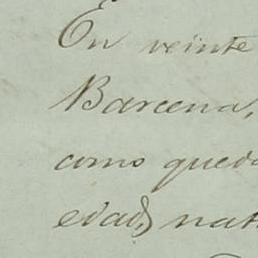 En veinte
Barcena,
como queda
edad, nat